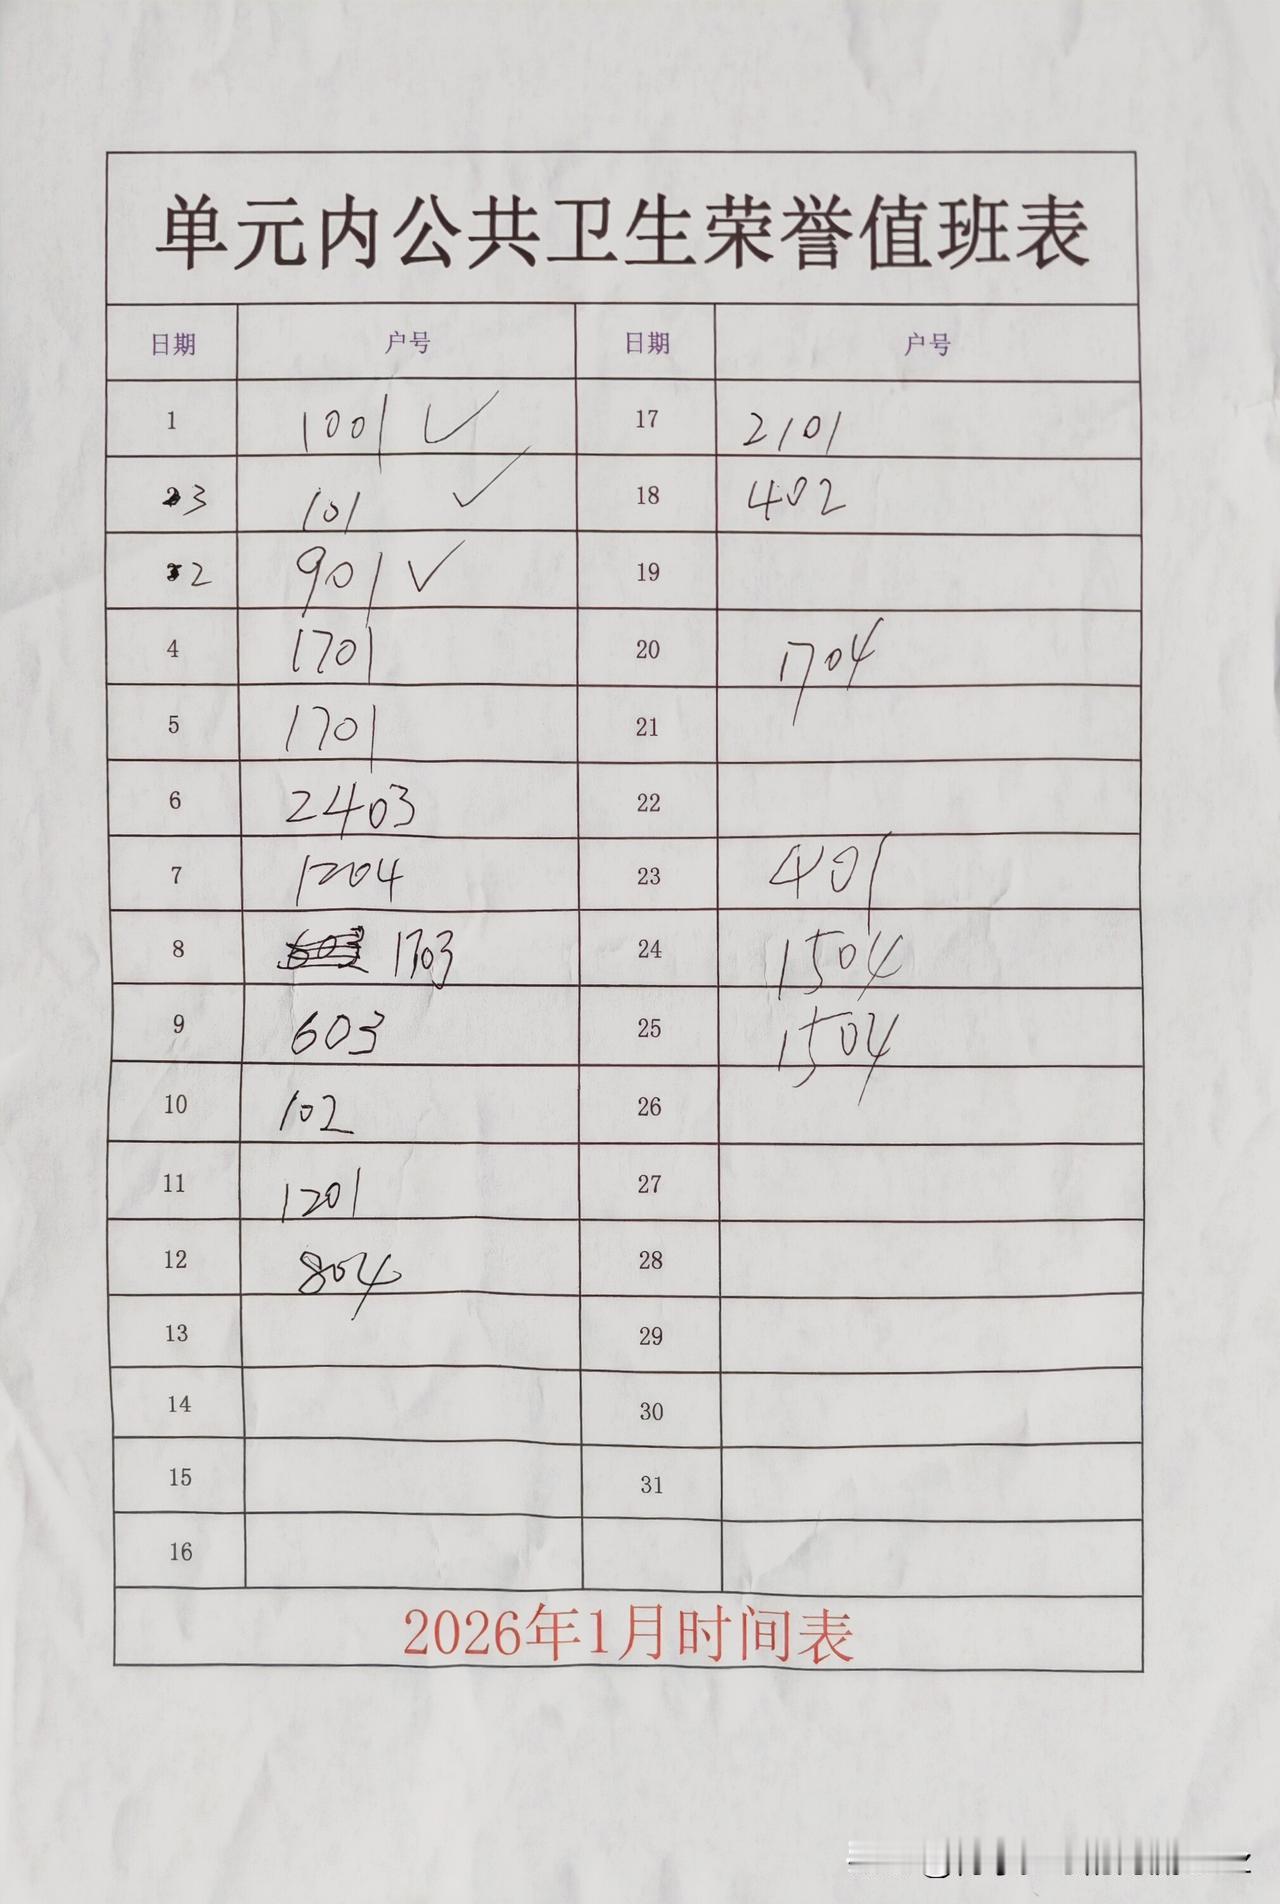 单元内公共卫生荣誉值班表
日期 户号 日期 户号
1 1001 ✓ 17 2101
3 101 ✓ 18 402
2 901 ✓ 19
4 1701 20 1704
5 1701 21
6 2403 22
7 1204 23 401
8 1703 24 1504
9 603 25 1504
10 102 26
11 1201 27
12 804 28
13 29
14 30
15 31
16
2026年1月时间表